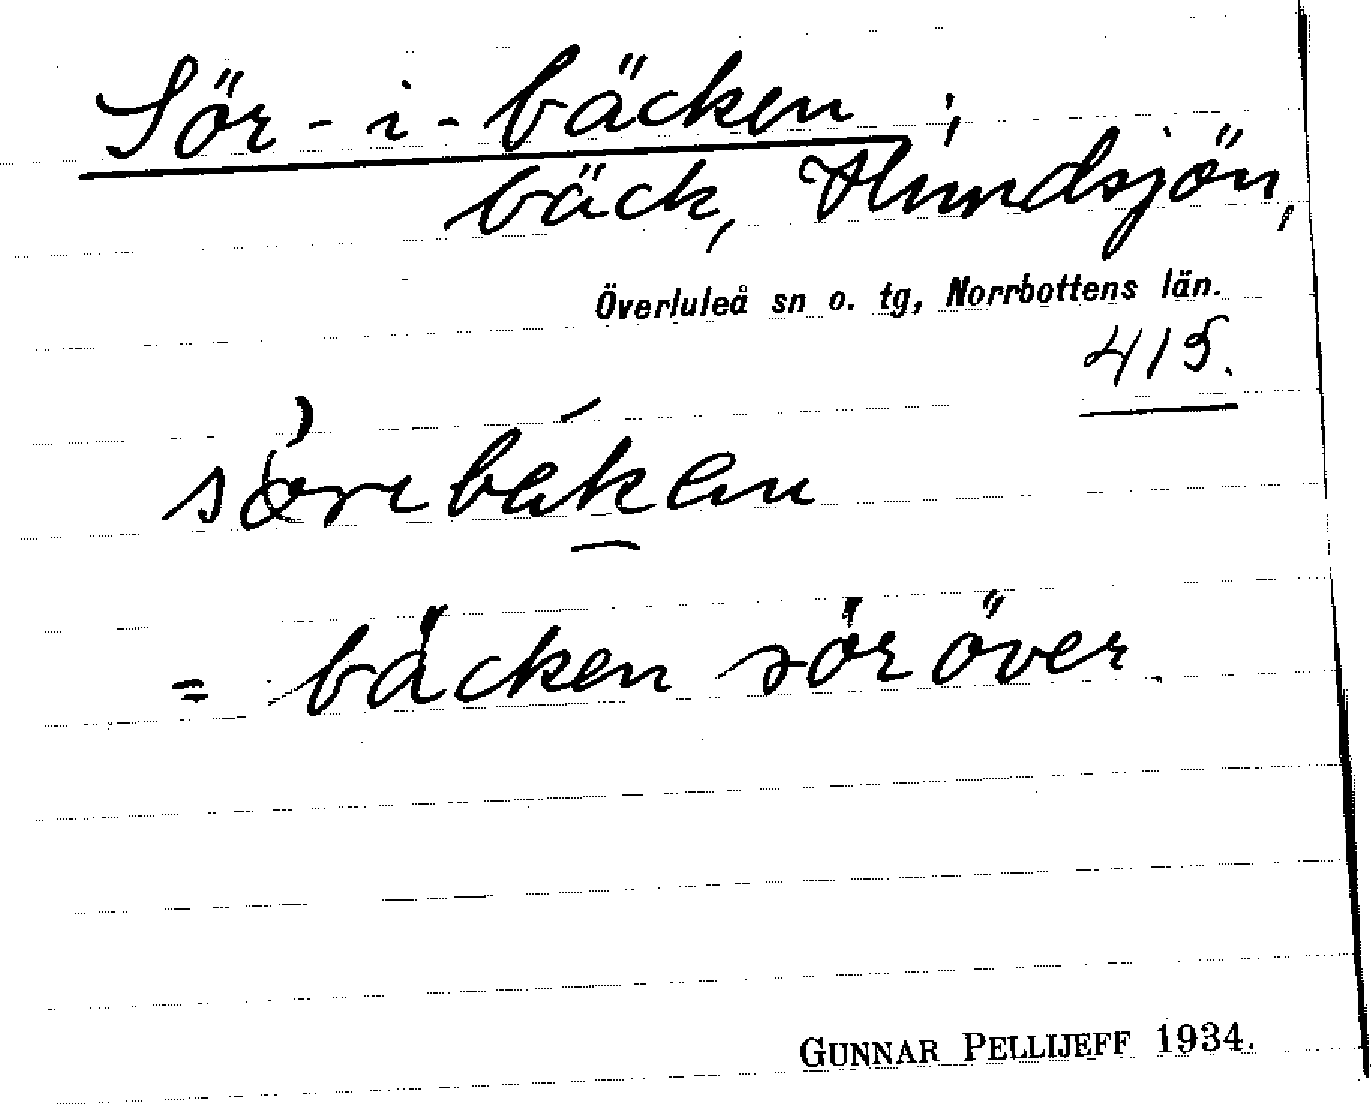 Sör-i-bäcken ;
bäck, Hundsjön,
Överluleå sn o. tg, Norrbottens län.
415.
= bäcken sör över
GUNNAR PELLIJEFF 1934.